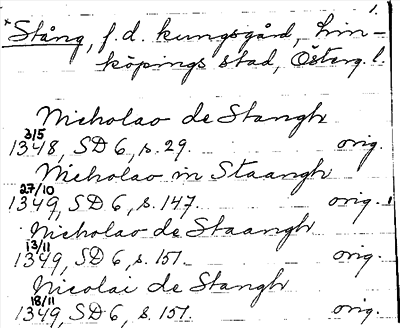 1.
*Stång, f.d. kungsgård, Lin-
köpings stad, Österg. l.
Nicholao de Stangh
1348 3/5, SD 6, s. 29. orig.
Nicholao in Staangh
1349 27/10, SD 6, s. 147. orig.
Nicholao de Staangh
1349 13/11, SD 6, s. 151. orig.
Nicolai de Stangh
1349 18/11, SD 6, s. 151. orig.